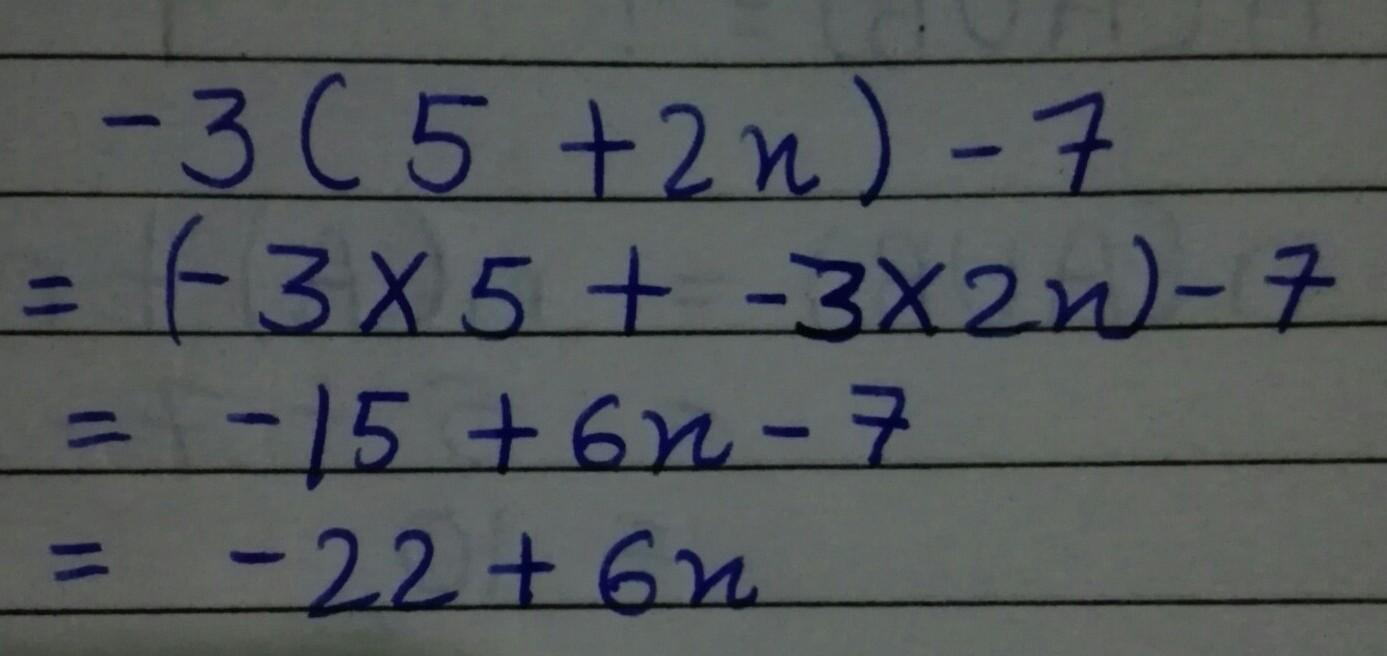 -3(5 + 2x) - 7
= (-3 × 5 + -3 × 2x) - 7
= -15 + 6x - 7
= -22 + 6x